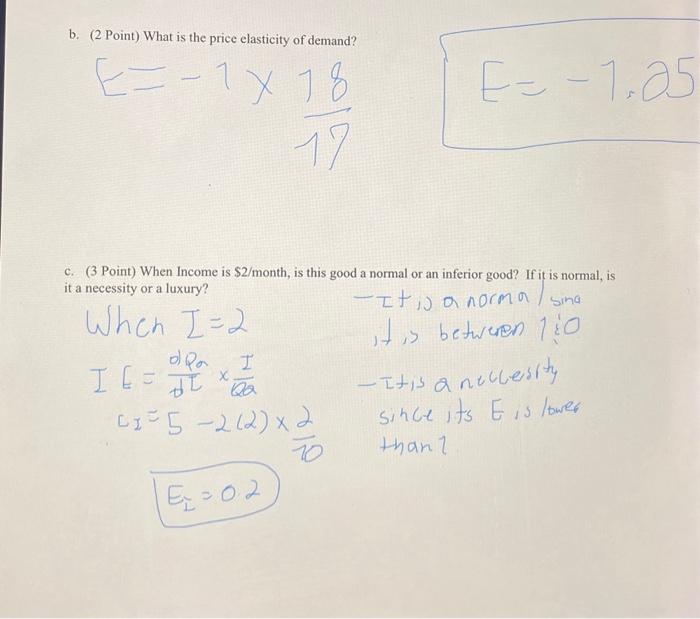 b. (2 Point) What is the price elasticity of demand?
E = -1 × 18/17
E = -1.25
c. (3 Point) When Income is $2/month, is this good a normal or an inferior good? If it is normal, is
it a necessity or a luxury?
When I = 2
I E = dQa/dI × I/Qa
EI = 5 - 2(2) × 2/10
EI = 0.2
- It is a normal sinc
it is between 1 & 0
- It is a necessity
since its E is lower
than 1